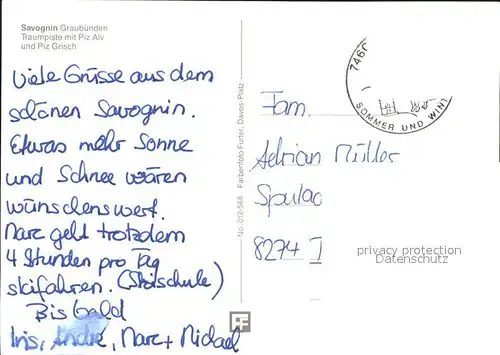 Savognin Graubünden
Traumpiste mit Piz Alv
und Piz Grisch
Viele Grüsse aus dem
schönen Savognin.
Etwas mehr Sonne
und Schnee wären
wünschenswert.
Marc geht trotzdem
4 Stunden pro Tag
skifahren. (Skischule)
Bis bald
Iris, André, Marc + Michael
No. 012-568 Farbenfoto Furter, Davos-Platz
7460
SOMMER UND WINT
Fam.
Adrian Müller
8274 T
privacy protection
Datenschutz